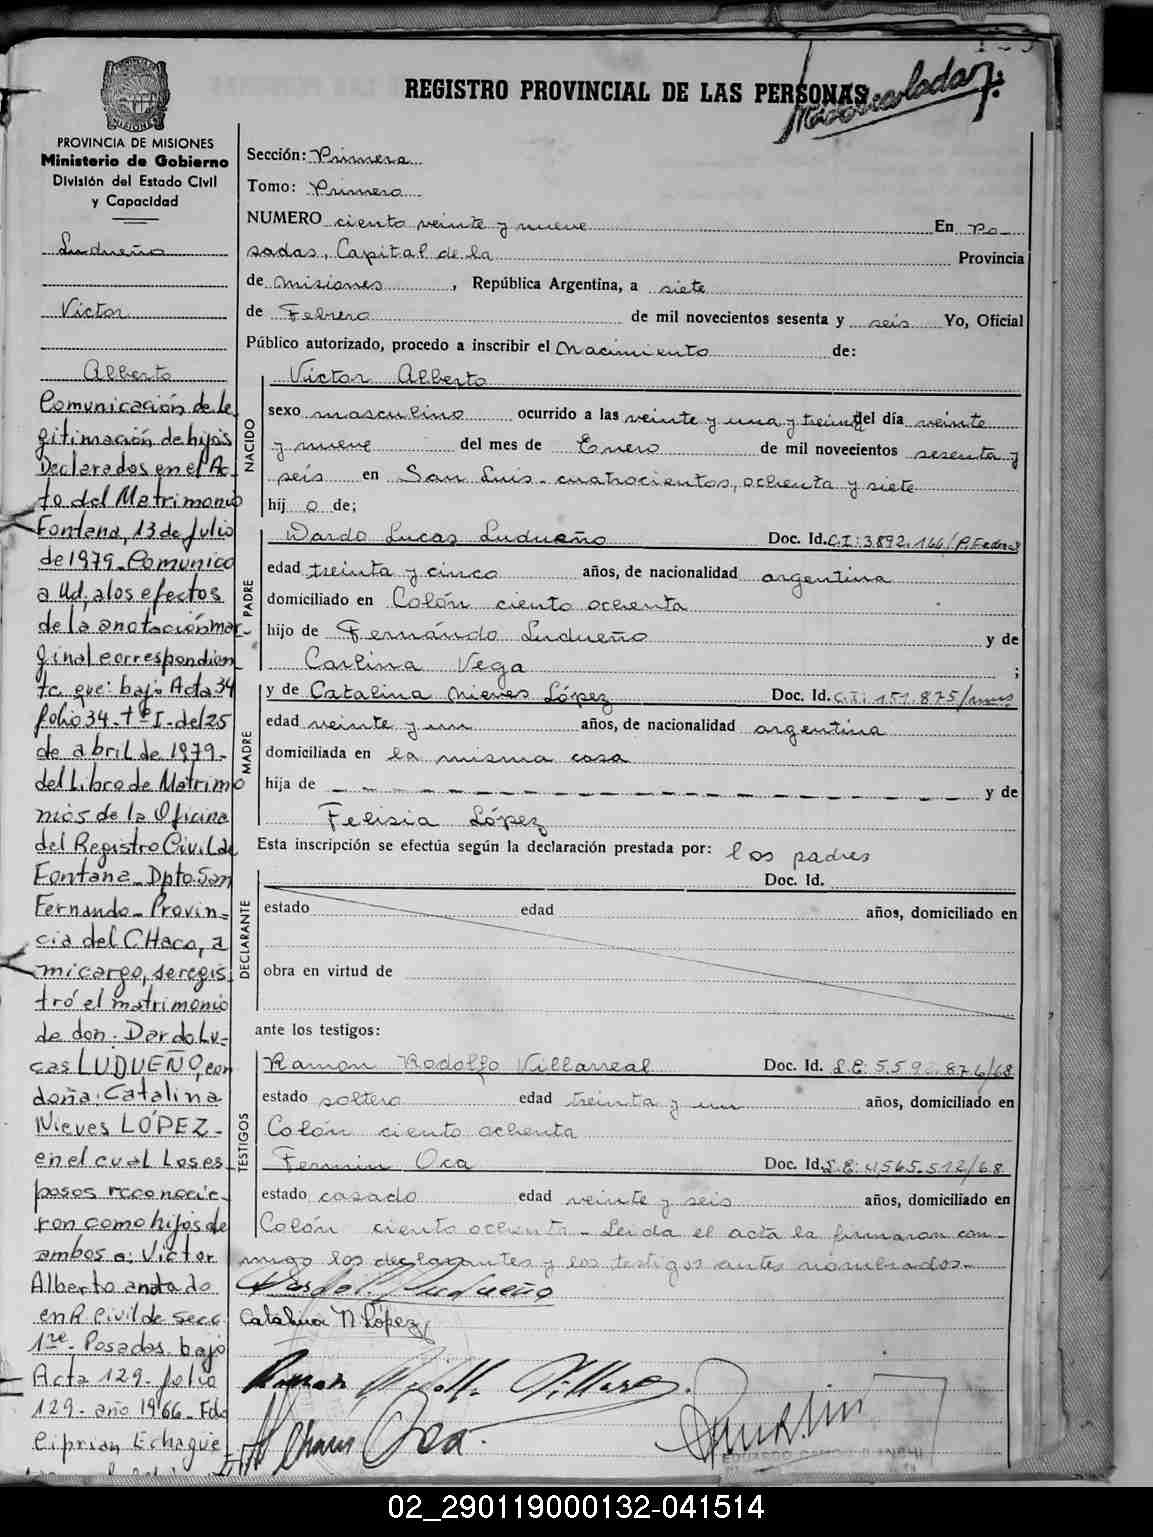 REGISTRO PROVINCIAL DE LAS PERSONAS
PROVINCIA DE MISIONES
Ministerio de Gobierno
División del Estado Civil
y Capacidad
Ludueño
Victor
Alberto
Comunicación de le
gitimación de hijos
Declarados en el Ac
to del Matrimonio
Fontana, 13 de Julio
de 1979. Comunico
a Ud, a los efectos
de la anotación mar-
ginal correspondien
te que: bajo Acta 34
folio 34 - tº I - del 25
de abril de 1979 -
del Libro de Matrimo
nios de la Oficina
del Registro Civil de
Fontana - Dpto. San
Fernando - Provin=
cia del CHaco, a
mi cargo, se regis
tró el matrimonio
de don: Dardo Lu-
cas LUDUEÑO, con
doña: Catalina
Nieves LÓPEZ -
en el cual los es
posos reconocie-
ron como hijos de
ambos a: Victor
Alberto anotado
en R. Civil de Secc
1ra - Posadas bajo
Acta 129 - folio
129 - año 1966 - Fdo
Ciprian Echague
Sección: Primera
Tomo: Primero
NUMERO ciento veinte y nueve En Po-
sadas, Capital de la Provincia
de Misiones, República Argentina, a siete
de Febrero de mil novecientos sesenta y seis Yo, Oficial
Público autorizado, procedo a inscribir el Nacimiento de:
NACIDO
Victor Alberto
sexo masculino ocurrido a las veinte y una y treinta del día veinte
y nueve del mes de Enero de mil novecientos sesenta y
seis en San Luis - cuatrocientos, ochenta y siete
hij o de;
PADRE
Dardo Lucas Ludueño Doc. Id. C.I: 3.892.166/P.Federal
edad treinta y cinco años, de nacionalidad argentina
domiciliado en Colón ciento ochenta
hijo de Fernándo Ludueño y de
Carlina Vega ;
MADRE
y de Catalina Nieves López Doc. Id. C.I: 151.875/mnes
edad veinte y un años, de nacionalidad argentina
domiciliada en la misma casa
hija de - - - - - - - - - - y de
Felisia López
Esta inscripción se efectúa según la declaración prestada por: los padres
DECLARANTE
Doc. Id.
estado edad años, domiciliado en
obra en virtud de
ante los testigos:
TESTIGOS
Ramon Rodolfo Villarreal Doc. Id. L.E: 874/68
estado soltero edad treinta y un años, domiciliado en
Colón ciento ochenta
Fermin Oca Doc. Id. L.E: 4,565.512/68
estado casado edad veinte y seis años, domiciliado en
Colón ciento ochenta - Leida el acta la firmaron con-
migo los declarantes y los testigos antes nombrados -
Dardo L. Ludueño
Catalina N. López
Ramon Rodolfo Villarreal
Oca
02_290119000132-041514